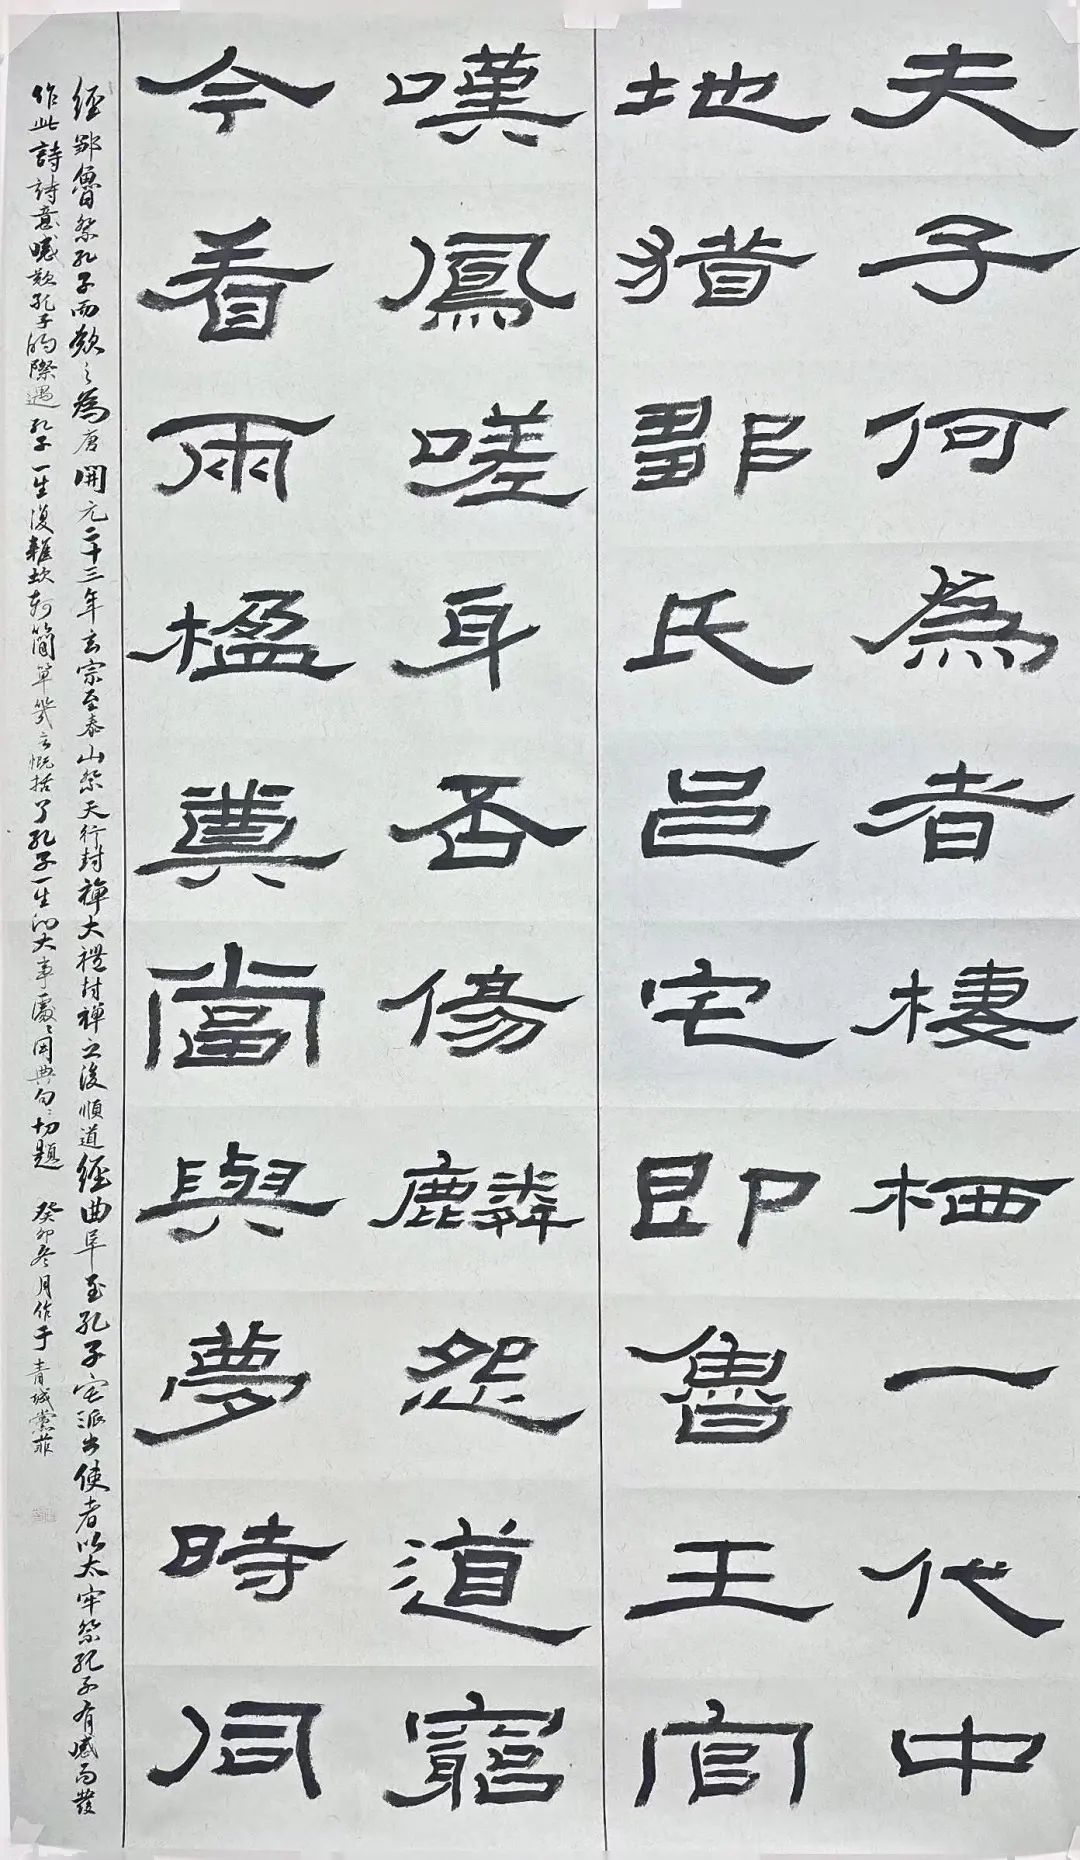 夫子何為者棲栖一代中
地猶鄹氏邑宅即魯王宮
嘆鳳嗟身否傷麟怨道窮
今看兩楹奠當與夢時同
經鄒魯祭孔子而歎之為唐開元二十三年玄宗至泰山祭天行封禪大禮封禪之後順道經曲阜至孔子宅派出使者以太牢祭孔子有感而發
作此詩詩意感歎孔子的際遇孔子一生復雜坎坷簡單幾言概括了孔子一生的大事處處用典句句切題 癸卯冬月作于青城黨菲